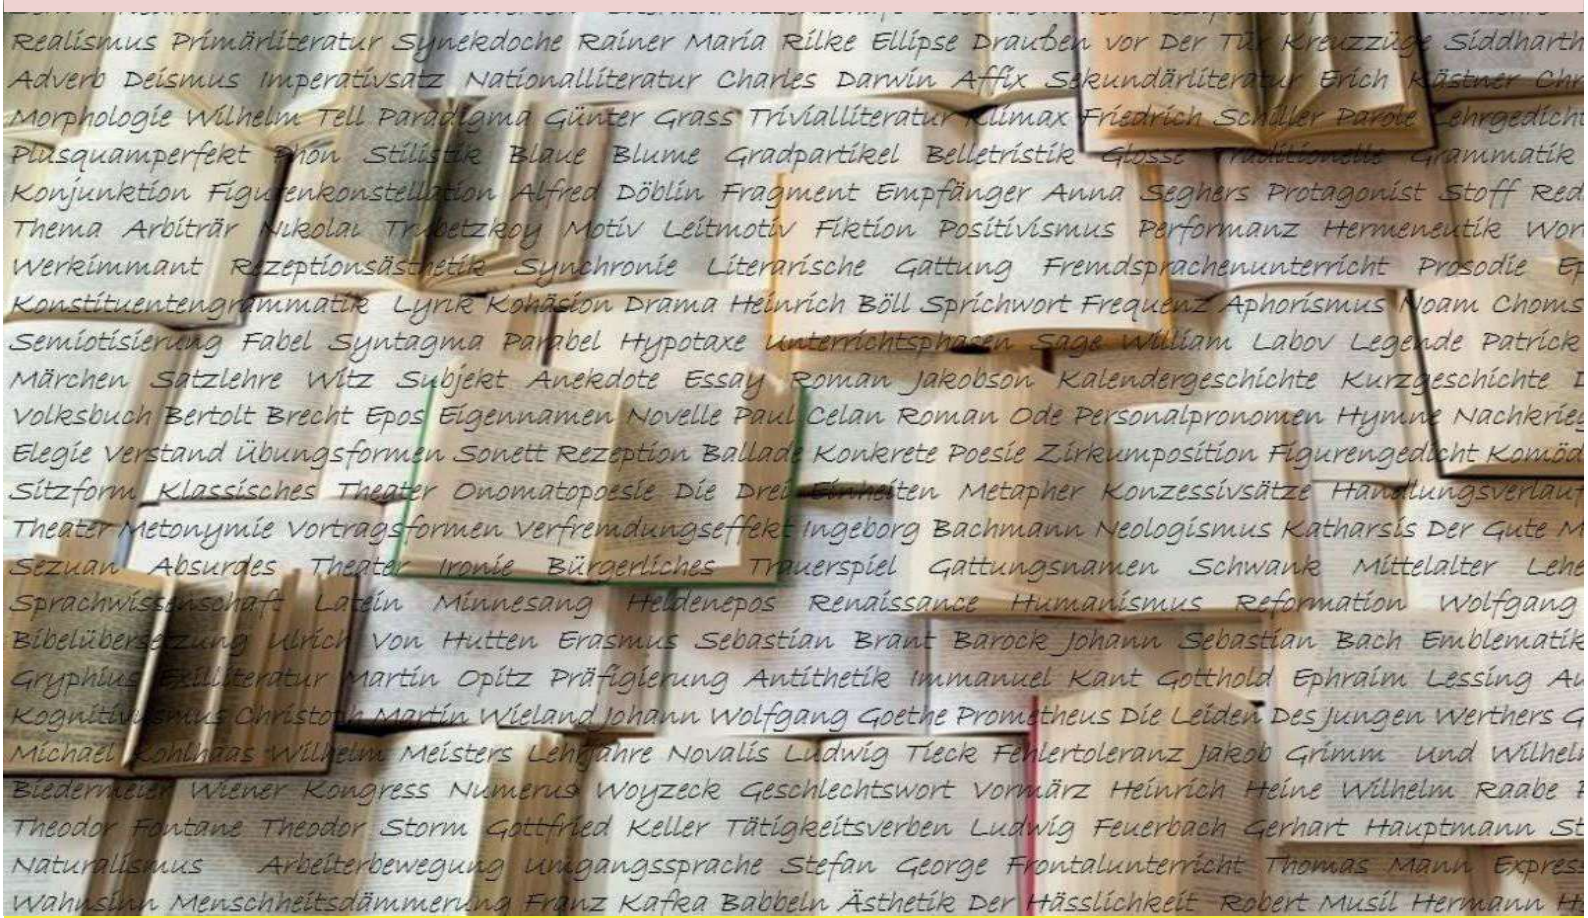 Realismus Primärliteratur Synekdoche Rainer Maria Rilke Ellipse Draußen vor Der Tür Kreuzzüge Siddharth
Adverb Deismus Imperativsatz Nationalliteratur Charles Darwin Affix Sekundärliteratur Erich Kästner Chr
Morphologie Wilhelm Tell Paradigma Günter Grass Trivialliteratur Klimax Friedrich Schiller Parole Lehrgedicht
Plusquamperfekt Phon Stilistik Blaue Blume Gradpartikel Belletristik Glosse Traditionelle Grammatik
Konjunktion Figurenkonstellation Alfred Döblin Fragment Empfänger Anna Seghers Protagonist Stoff Red
Thema Arbiträr Nikolai Trubetzkoy Motiv Leitmotiv Fiktion Positivismus Performanz Hermeneutik Wor
Werkimmant Rezeptionsästhetik Synchronie Literarische Gattung Fremdsprachenunterricht Prosodie Ep
Konstituentengrammatik Lyrik Kohäsion Drama Heinrich Böll Sprichwort Frequenz Aphorismus Noam Choms
Semiotisierung Fabel Syntagma Parabel Hypotaxe Unterrichtsphasen Sage William Labov Legende Patrick
Märchen Satzlehre Witz Subjekt Anekdote Essay Roman Jakobson Kalendergeschichte Kurzgeschichte D
Volksbuch Bertolt Brecht Epos Eigennamen Novelle Paul Celan Roman Ode Personalpronomen Hymne Nachkrieg
Elegie Verstand Übungsformen Sonett Rezeption Ballade Konkrete Poesie Zirkumposition Figurengedicht Komöd
Sitzform Klassisches Theater Onomatopoesie Die Drei Einheiten Metapher Konzessivsätze Handlungsverlauf
Theater Metonymie Vortragsformen Verfremdungseffekt Ingeborg Bachmann Neologismus Katharsis Der Gute M
Sezuan Absurdes Theater Ironie Bürgerliches Trauerspiel Gattungsnamen Schwank Mittelalter Lehe
Sprachwissenschaft Latein Minnesang Heldenepos Renaissance Humanismus Reformation Wolfgang
Bibelübersetzung Ulrich Von Hutten Erasmus Sebastian Brant Barock Johann Sebastian Bach Emblematik
Gryphius Exilliteratur Martin Opitz Präfigierung Antithetik Immanuel Kant Gotthold Ephraim Lessing Au
Kognitivismus Christoth Martin Wieland Johann Wolfgang Goethe Prometheus Die Leiden Des Jungen Werthers G
Michael Kohlhaas Wilhelm Meisters Lehrjahre Novalis Ludwig Tieck Fehlertoleranz Jakob Grimm und Wilhelm
Biedermeier Wiener Kongress Numerus Woyzeck Geschlechtswort Vormärz Heinrich Heine Wilhelm Raabe
Theodor Fontane Theodor Storm Gottfried Keller Tätigkeitsverben Ludwig Feuerbach Gerhart Hauptmann St
Naturalismus Arbeiterbewegung Umgangssprache Stefan George Frontalunterricht Thomas Mann Express
Wahnsinn Menschheitsdämmerung Franz Kafka Babbeln Ästhetik Der Hässlichkeit Robert Musil Hermann He